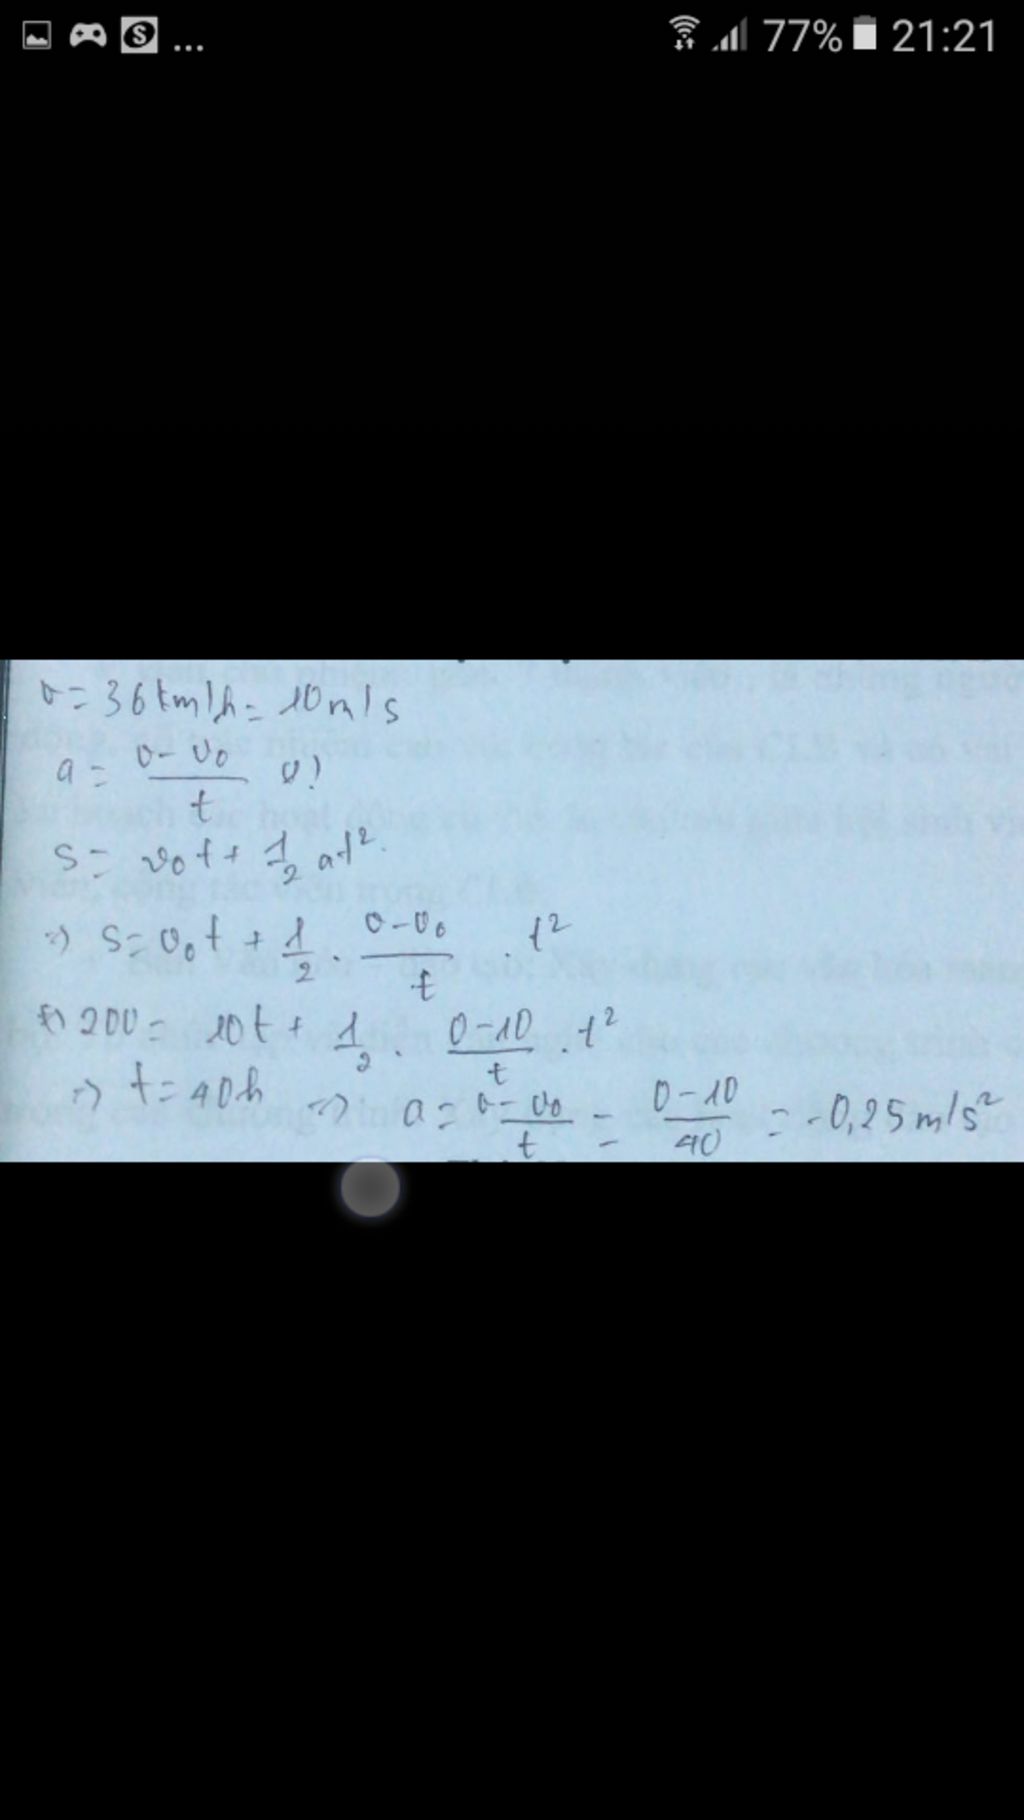 ... 77% 21:21
v = 36 km/h = 10 m/s
a = \frac{v - v_0}{t}
s = v_0 t + \frac{1}{2} at^2.
=> s = v_0 t + \frac{1}{2} . \frac{v - v_0}{t} . t^2
200 = 10t + \frac{1}{2} . \frac{0 - 10}{t} . t^2
=> t = 40h => a = \frac{v - v_0}{t} = \frac{0 - 10}{40} = -0,25 m/s^2